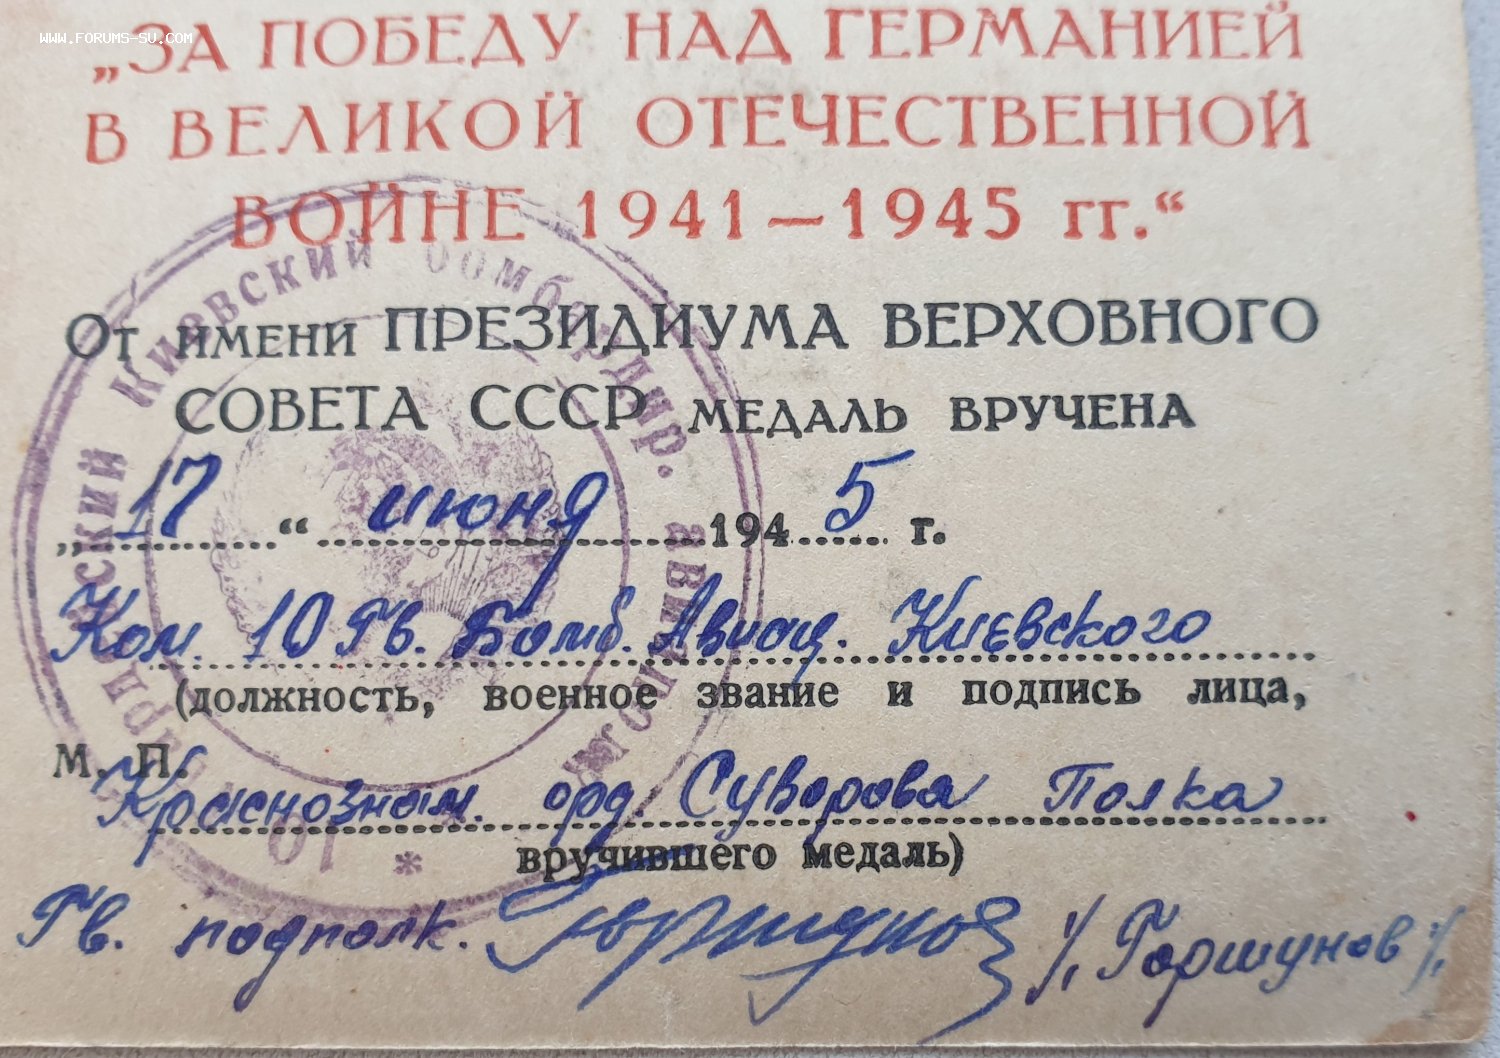 www.forums-su.com
„ЗА ПОБЕДУ НАД ГЕРМАНИЕЙ
В ВЕЛИКОЙ ОТЕЧЕСТВЕННОЙ
ВОЙНЕ 1941—1945 гг.“
От имени ПРЕЗИДИУМА ВЕРХОВНОГО
СОВЕТА СССР МЕДАЛЬ ВРУЧЕНА
„17“ июня 1945 г.
Ком. 10 Гв. Бомб. Авиац. Киевского
(должность, военное звание и подпись лица,
М. П.
Краснознам. орд. Суворова Полка
вручившего медаль)
Гв. подполк. Горшунов /Горшунов/.
Киевский бомбардир. авиаполк * 10